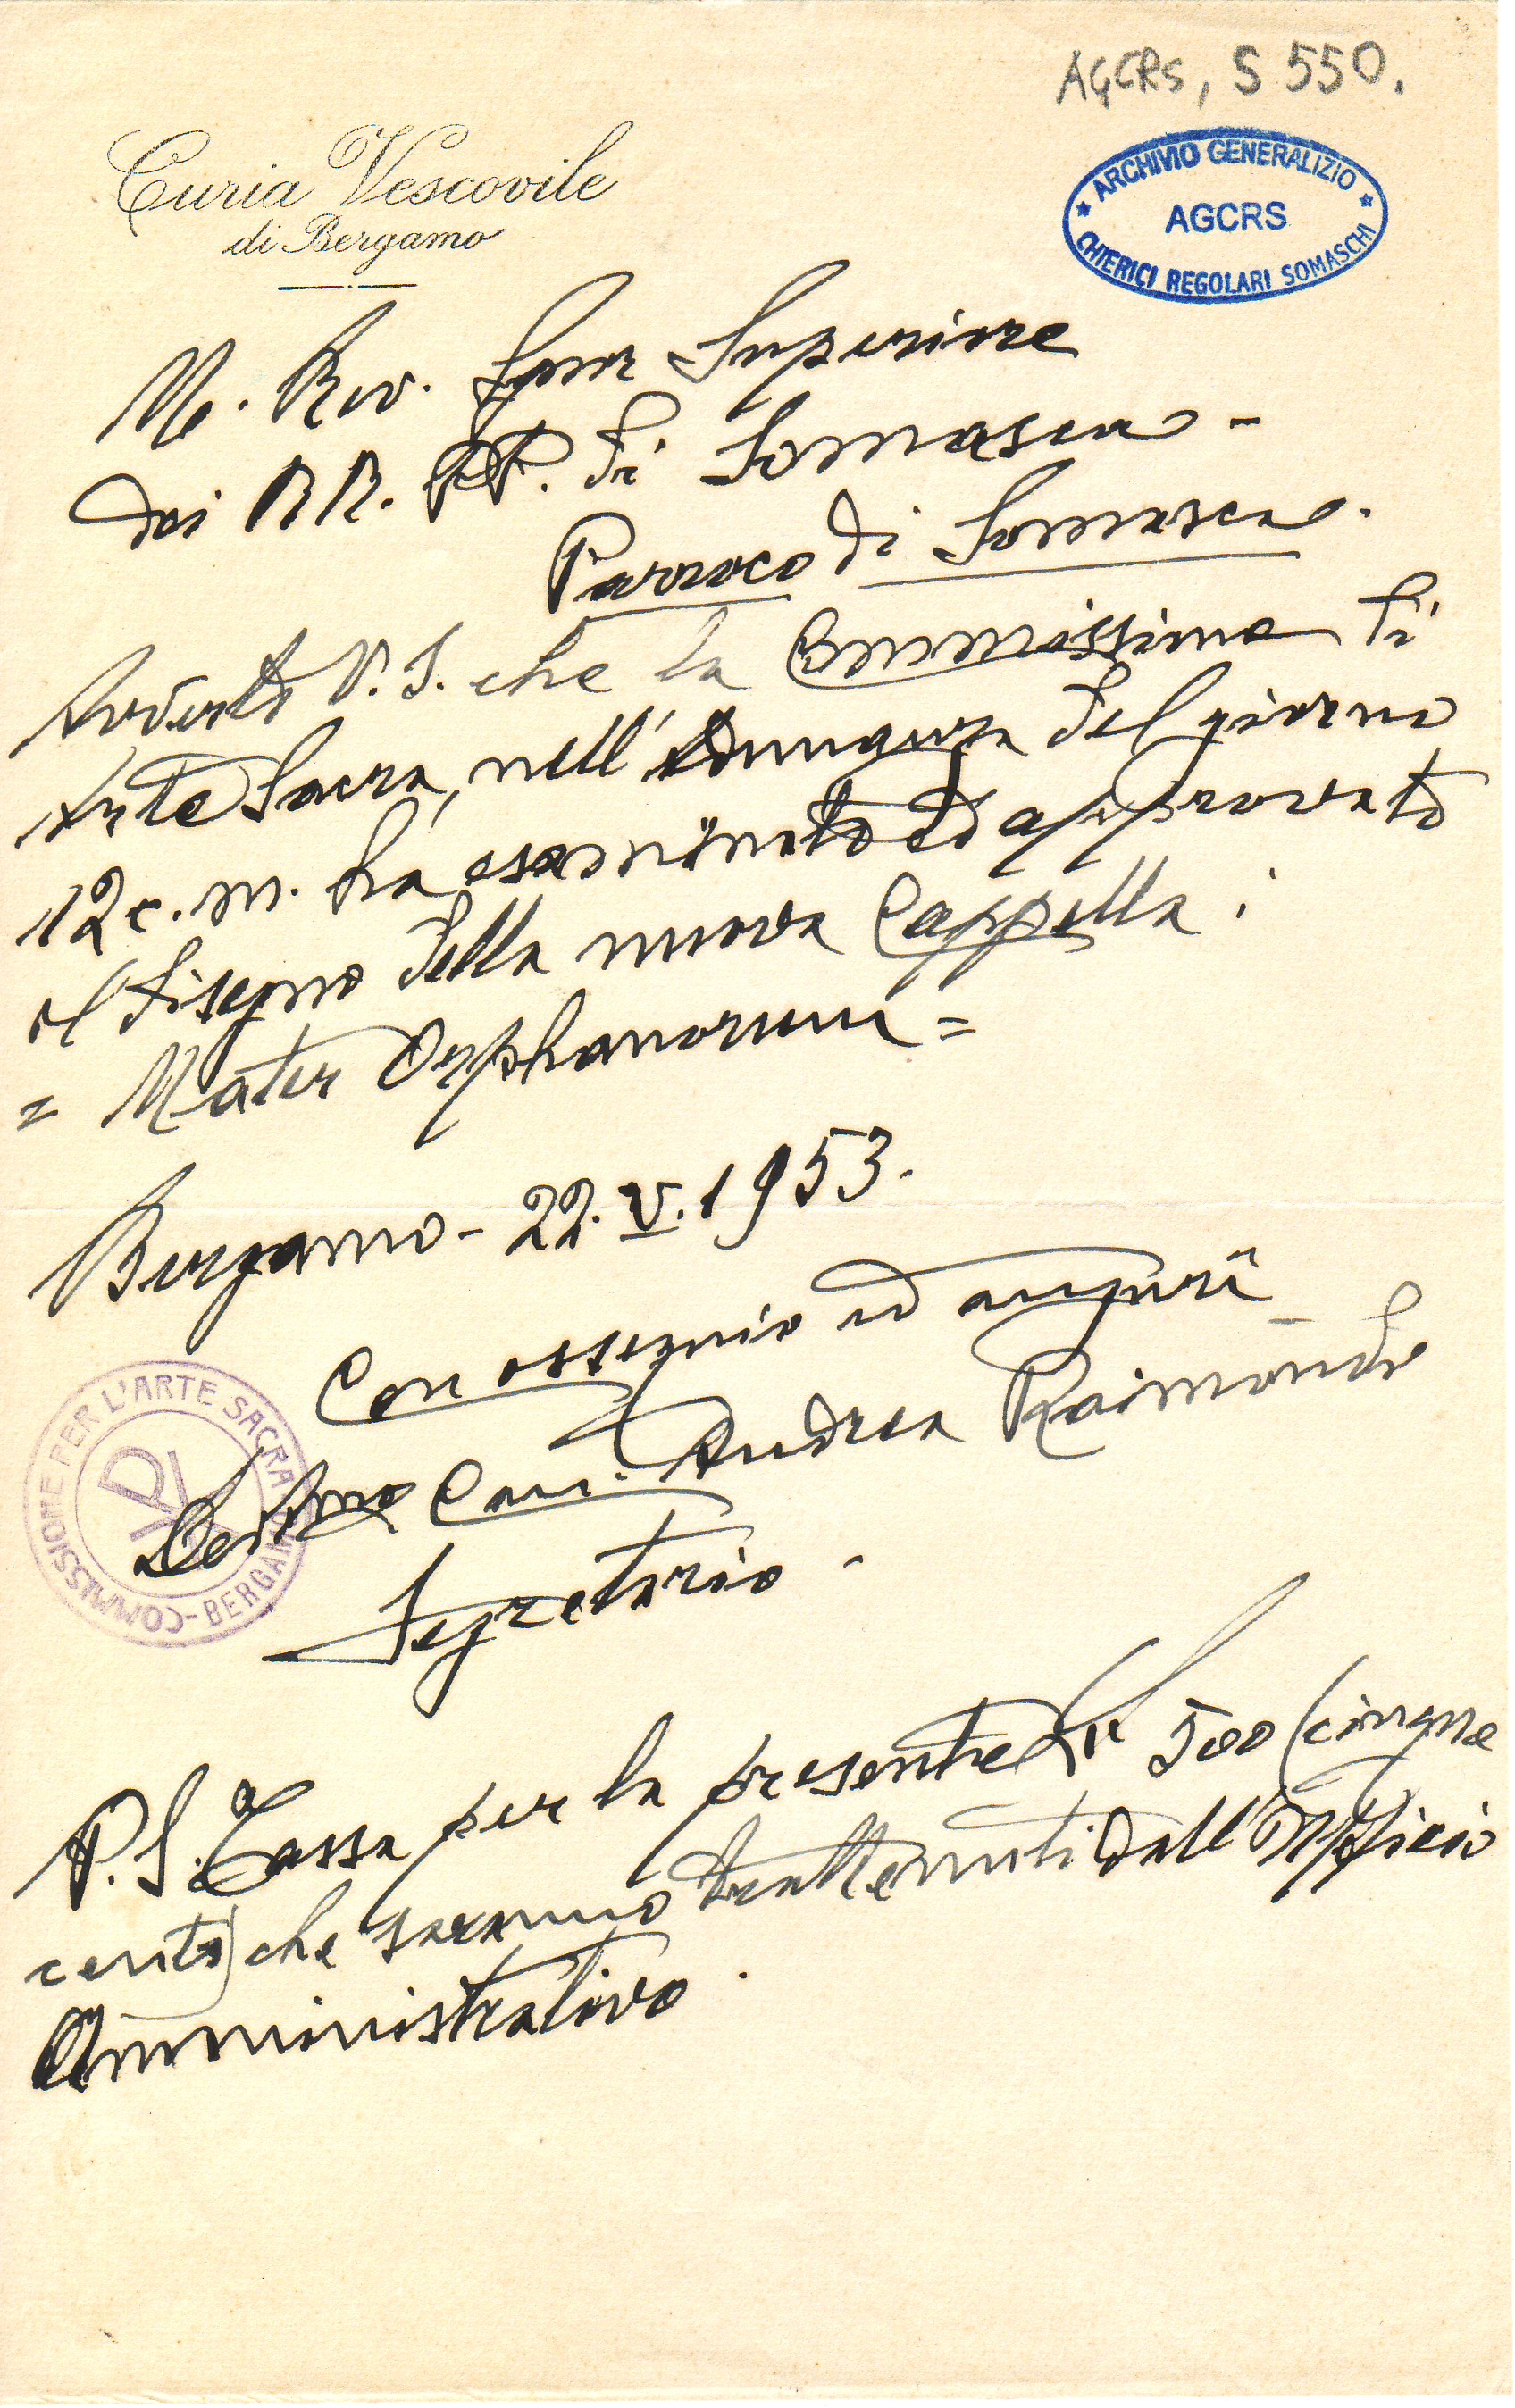 AGCRS, S 550.
ARCHIVIO GENERALIZIO
AGCRS
CHIERICI REGOLARI SOMASCHI
Curia Vescovile
di Bergamo
M. Rev. Signor Superiore
dei RR. PP. di Somasca -
Parroco di Somasca.
Avverto V. S. che la Commissione di
Arte Sacra, nell'Adunanza del giorno
12 c. m. ha esaminato ed approvato
il disegno della nuova Cappella :
= Mater Orphanorum =
Bergamo - 22. V. 1953.
Con ossequio ed auguri
Can. Andrea Raimondi
Segretario -
COMMISSIONE PER L'ARTE SACRA - BERGAMO
P. S. Tassa per la presente 500 (cinque
cento) che saranno trattenuti dall'Ufficio
Amministrativo.